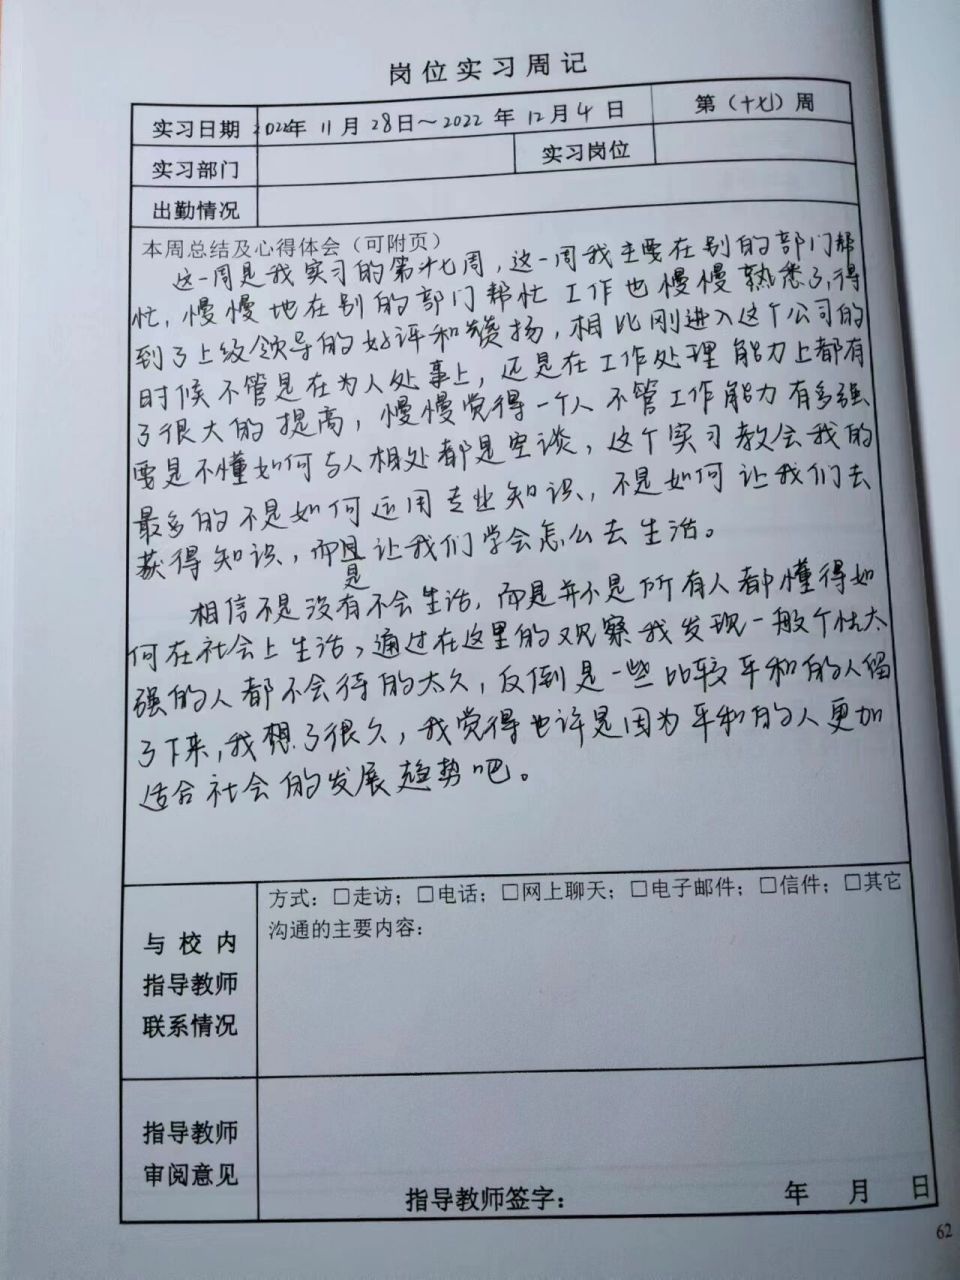 岗位实习周记
实习日期 2022年 11月 28日~2022年 12月 4日 第（十七）周
实习部门 实习岗位
出勤情况
本周总结及心得体会（可附页）
这一周是我实习的第十七周，这一周我主要在别的部门帮
忙，慢慢地在别的部门帮忙工作也慢慢熟悉了，得
到了上级领导的好评和赞扬，相比刚进入这个公司的
时候不管是在为人处事上，还是在工作处理能力上都有
了很大的提高，慢慢觉得一个人不管工作能力有多强
要是不懂如何与人相处都是空谈，这个实习教会我的
最多的不是如何运用专业知识，不是如何让我们去
获得知识，而是让我们学会怎么去生活。
相信不是没有不会生活，而是并不是所有人都懂得如
何在社会上生活，通过在这里的观察我发现一般个性太
强的人都不会待的太久，反倒是一些比较平和的人留
了下来，我想了很久，我觉得也许是因为平和的人更加
适合社会的发展趋势吧。
与校内
指导教师
联系情况
方式：□走访；□电话；□网上聊天；□电子邮件；□信件；□其它
沟通的主要内容：
指导教师
审阅意见
指导教师签字： 年 月 日
62